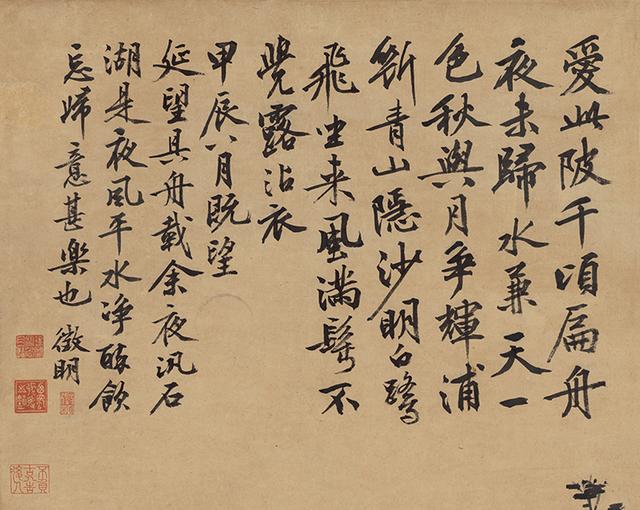 愛此陂千頃扁舟
夜未歸水兼天一
色秋與月爭輝浦
斷青山隱沙明白鷺
飛坐来風滿髩不
覺露沾衣
甲辰八月既望
延望具舟載余夜汎石
湖是夜風平水净酔飲
忘歸意甚樂也 徵明